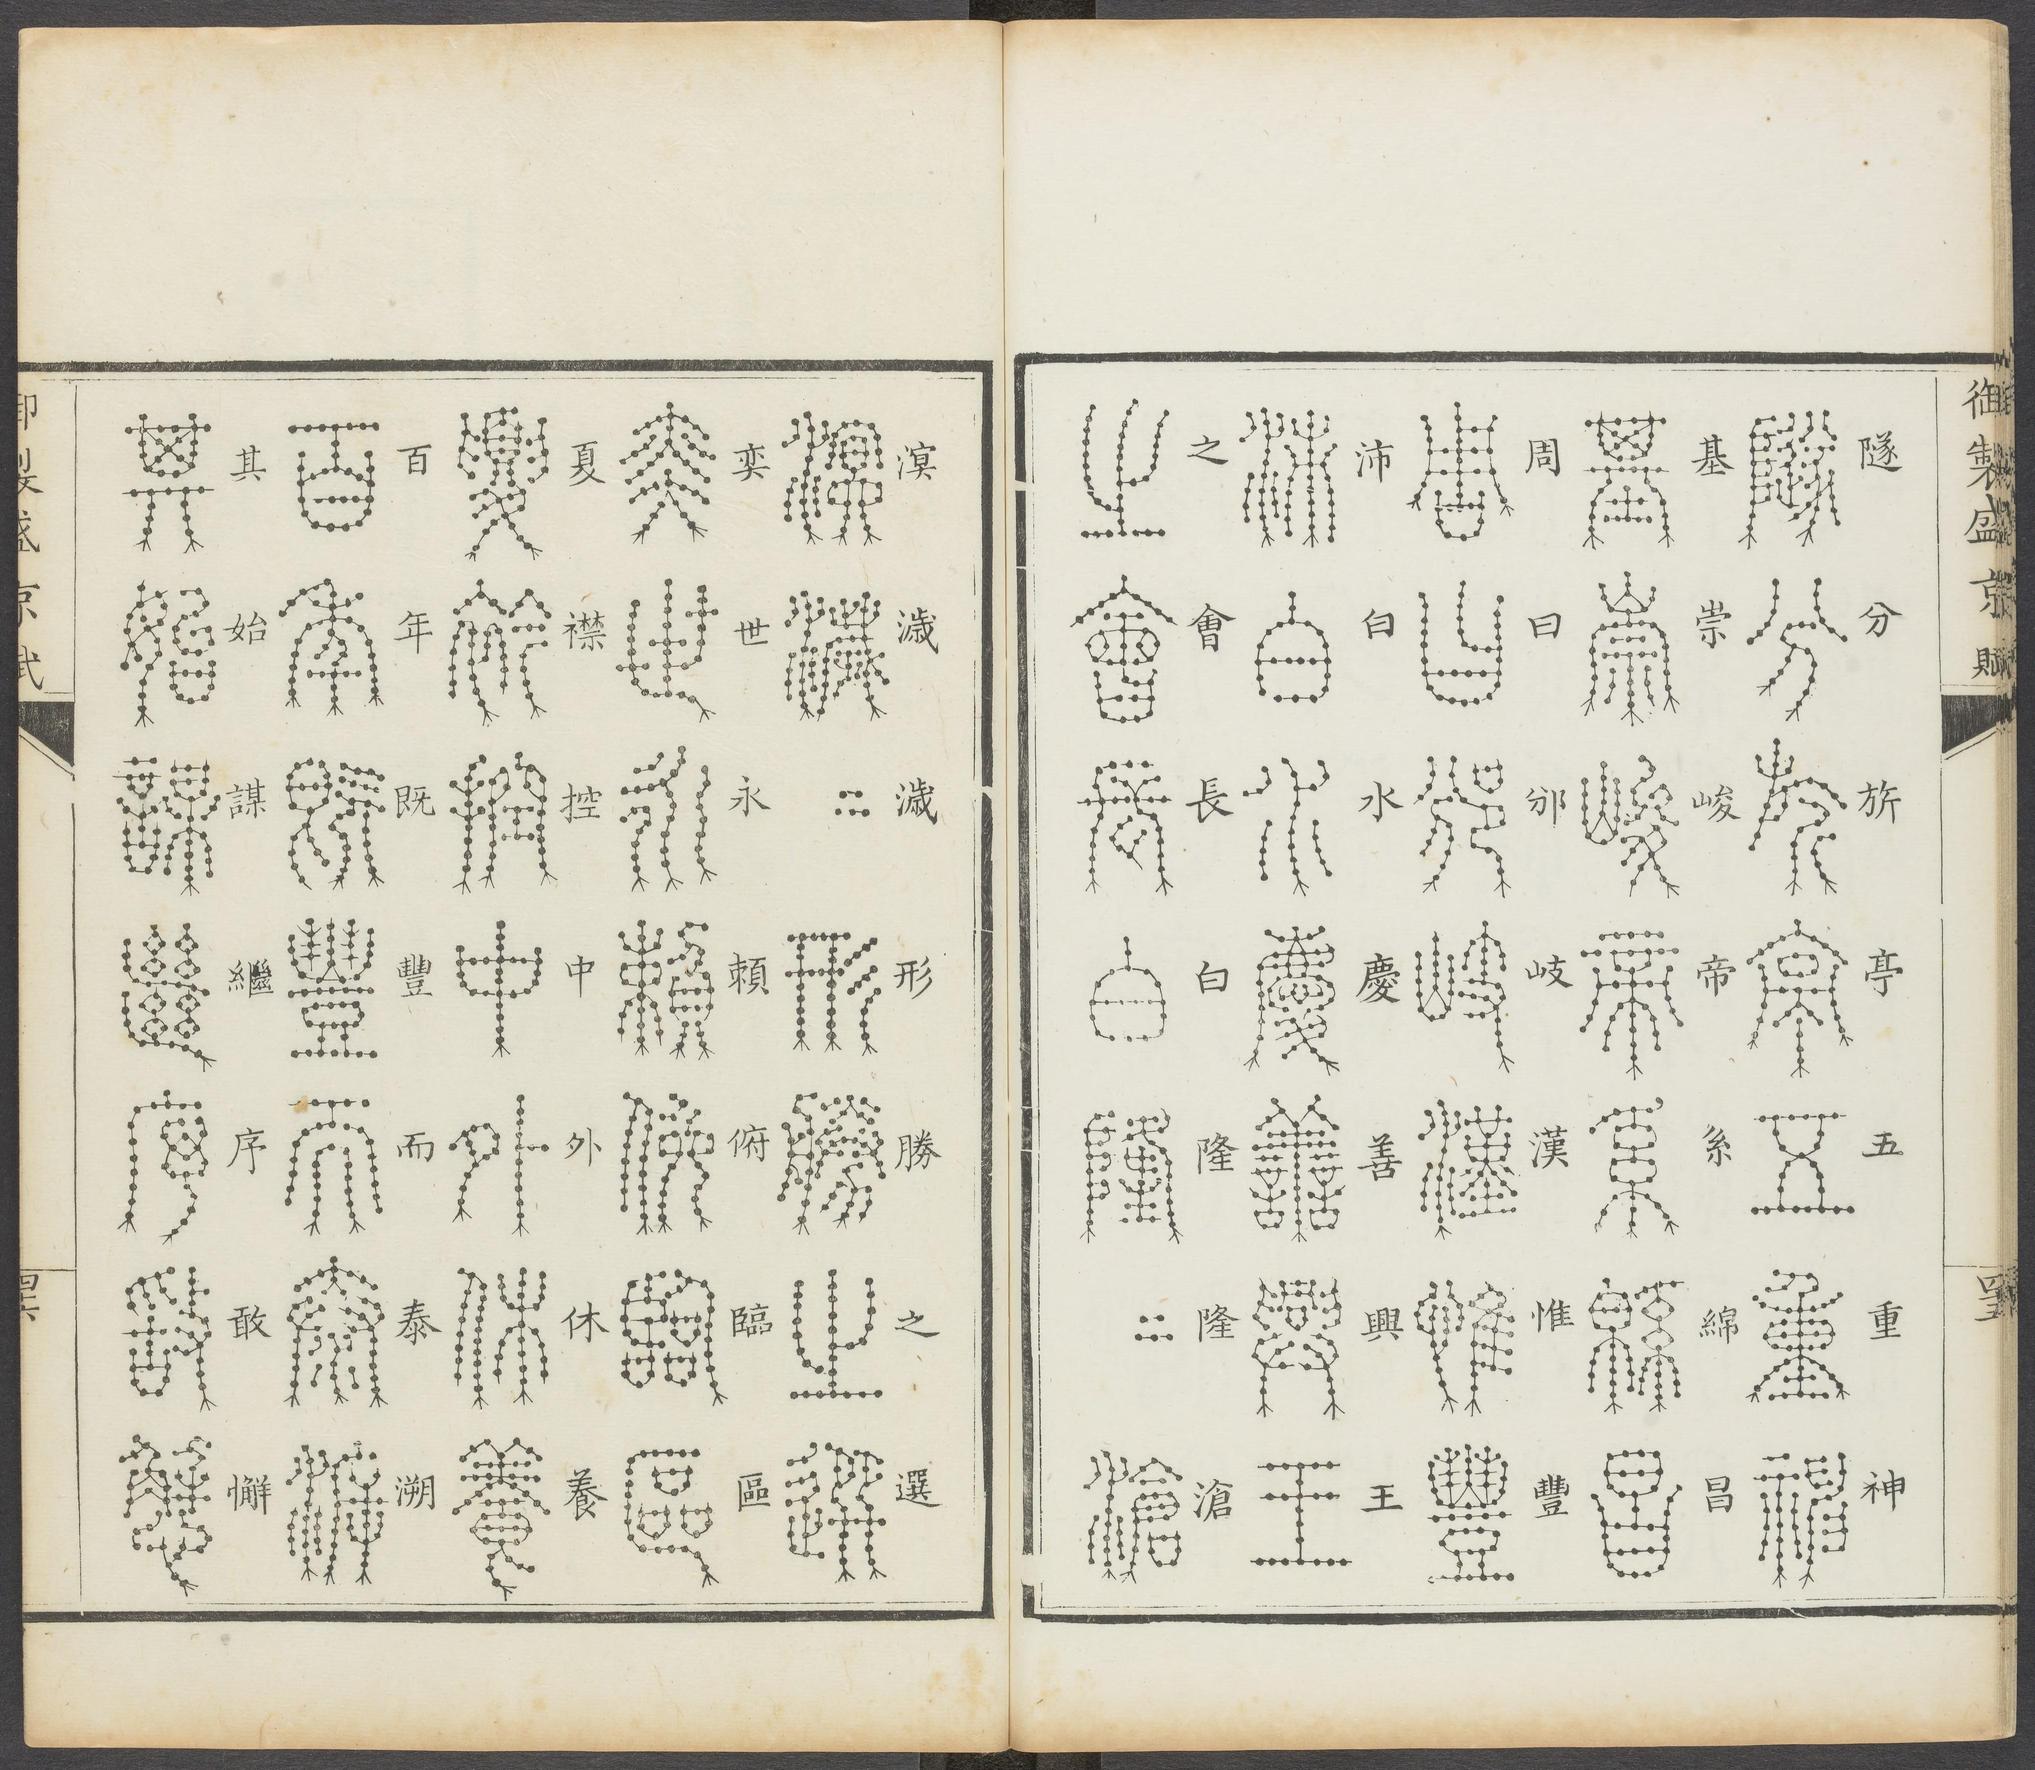 御製盛京賦
隧分旂亭五重神
基崇峻帝系綿昌
周曰邠岐漢惟豐
沛白水慶善興王
之會長白隆隆滄
溟濊濊形勝之選
奕世永賴俯臨區
夏襟控中外休養
百年既豐而泰溯
其始謀繼序敢懈